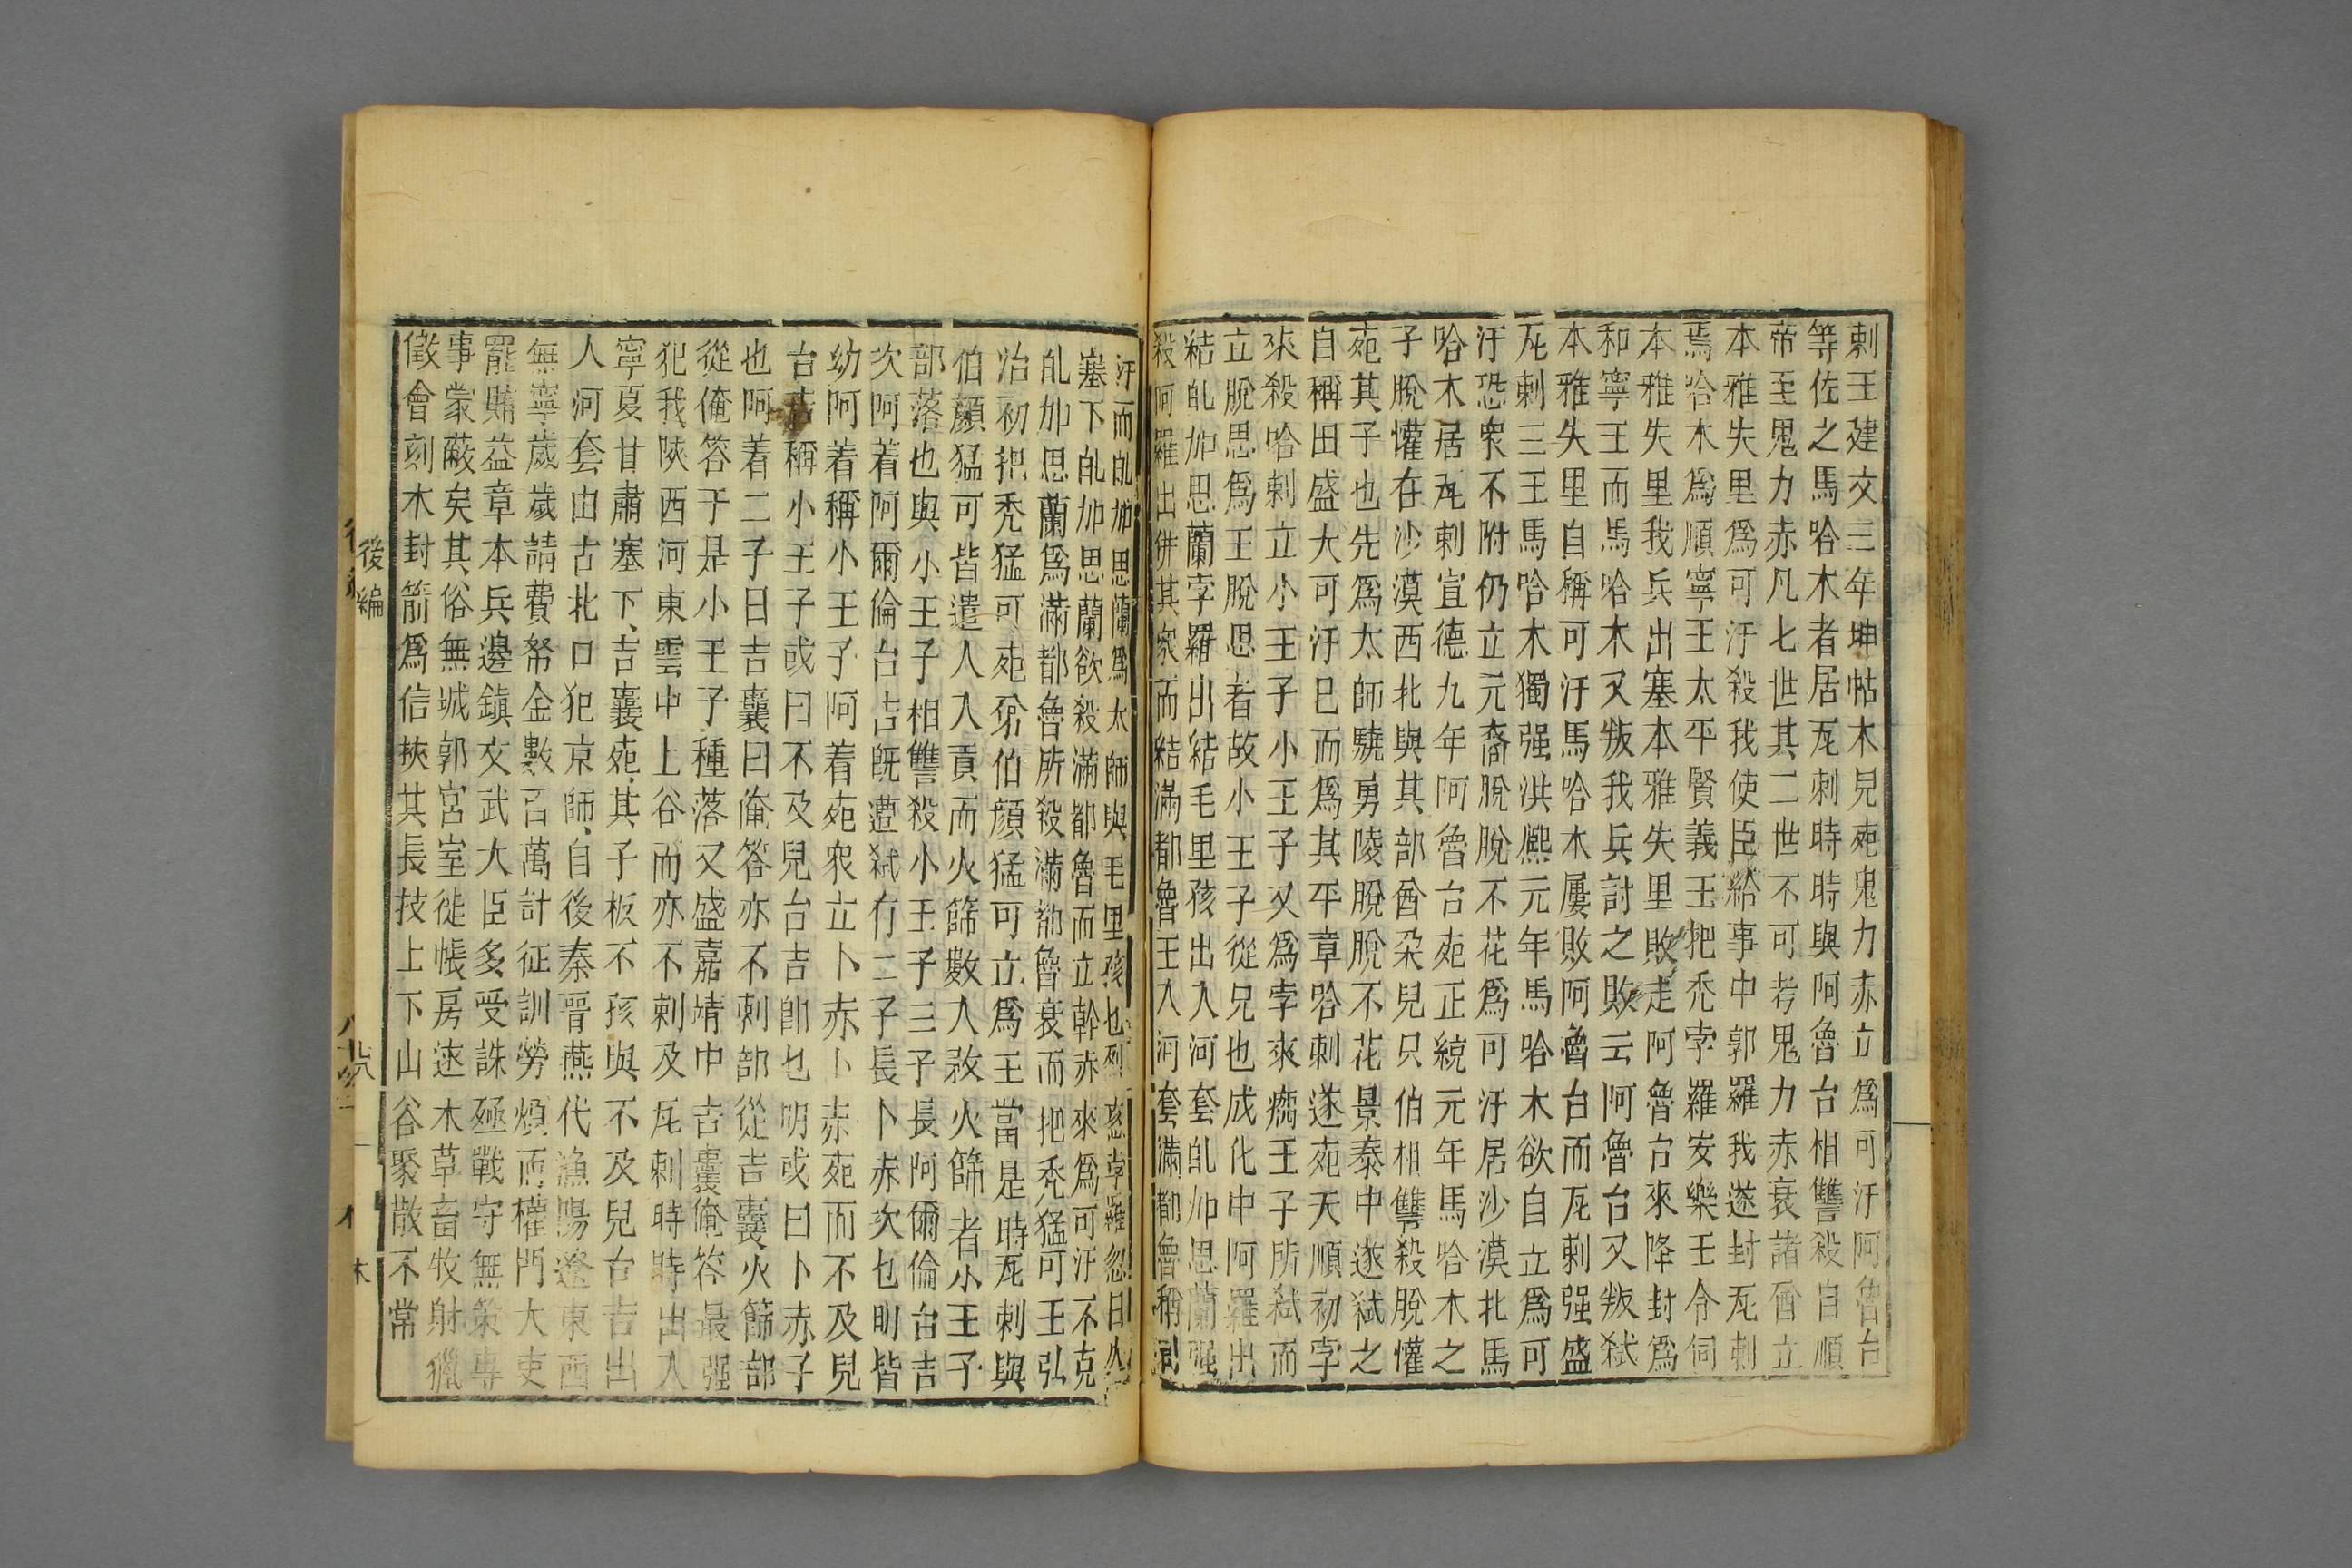 剌王建文三年坤帖木兒死鬼力赤立爲可汗阿魯台
等佐之馬哈木者居瓦剌時時與阿魯台相讐殺自順
帝至鬼力赤凡七世其二世不可考鬼力赤衰諸酋立
本雅失里爲可汗殺我使臣給事中郭羅我遂封瓦剌
馬哈木爲順寧王太平賢義王把禿孛羅安樂王令伺
本雅失里我兵出塞本雅失里敗走阿魯台來降封爲
和寧王而馬哈木又叛我兵討之敗云阿魯台又叛弒
本雅失里自稱可汗馬哈木屢敗阿魯台而瓦剌强盛
瓦剌三王馬哈木獨强洪熈元年馬哈木欲自立爲可
汗恐衆不附仍立元裔脫脫不花爲可汗居沙漠北馬
哈木居瓦剌宣德九年阿魯台死正統元年馬哈木之
子脫懽在沙漠西北與其部酋朶兒只伯相讐殺脫懽
死其子也先爲太師驍勇陵脫脫不花景泰中遂弒之
自稱田盛大可汗已而爲其平章哈剌遂死天順初孛
來殺哈剌立小王子小王子又爲孛來癿王子所弒而
立脫思爲王脫思者故小王子從兄也成化中阿羅出
結癿加思蘭孛羅出結毛里孩出入河套癿加思蘭强
殺阿羅出併其家而結滿都魯王入河套滿都魯稱可
汗而癿加思蘭爲太師與毛里孩也烈忽孛羅忽日入
塞下癿加思蘭欲殺滿都魯而立幹赤來爲可汗不克
癿加思蘭爲滿都魯所殺滿都魯衰而把禿猛可王弘
治初把禿猛可死弟伯顏猛可立爲王當是時瓦剌與
伯顏猛可皆遣人入貢而火篩數入敚火篩者小王子
部落也與小王子相讐殺小王子三子長阿爾倫台吉
次阿着阿爾倫台吉旣遭弒有二子長卜赤次也明皆
幼阿着稱小王子阿着死衆立卜赤卜赤死而不及兒
台吉稱小王子或曰不及兒台吉卽也明或曰卜赤子
也阿着二子曰吉囊曰俺答亦不剌部從吉囊火篩部
從俺答于是小王子種落又盛嘉靖中吉囊俺答最强
犯我陜西河東雲中上谷而亦不剌及瓦剌時時出入
寧夏甘肅塞下吉囊死其子板不孩與不及兒台吉出
入河套由古北口犯京師自後秦晉燕代漁陽遼東西
無寧歲歲請費帑金數百萬計征訓勞煩而權門大吏
罷賂益章本兵邊鎮文武大臣多受誅殛戰守無策專
事蒙蔽矣其俗無城郭宮室徙帳房逐木草畜牧射獵
徵會刻木封箭爲信挾其長技上下山谷聚散不常
後編